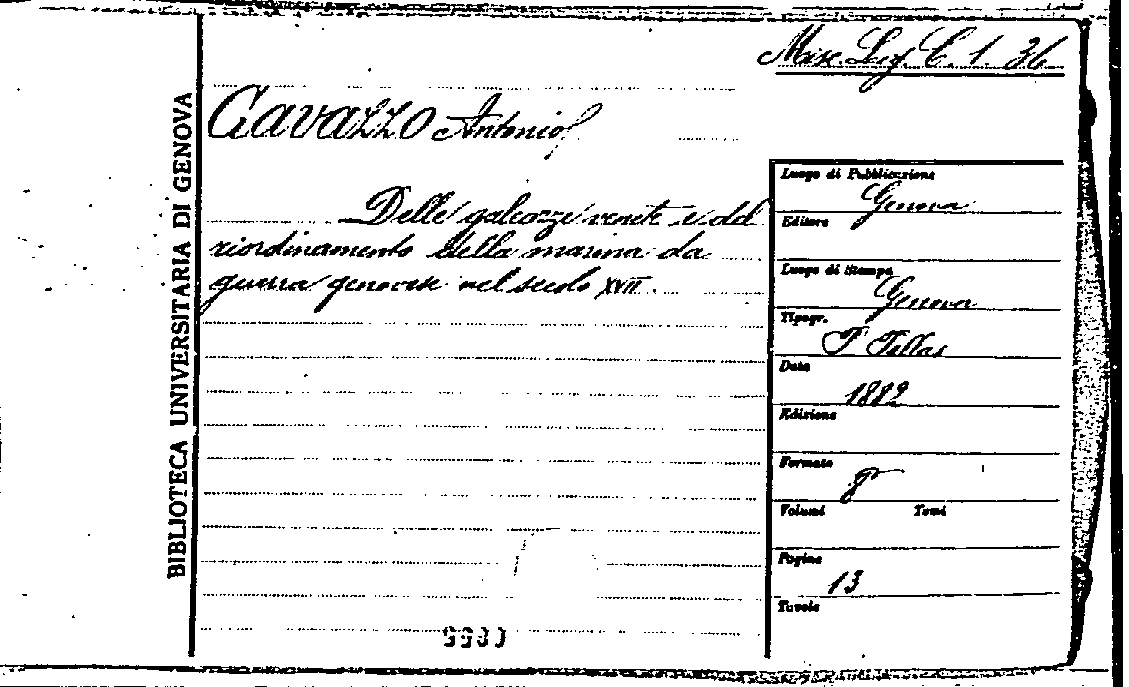 Misc. Lig. C. 1. 36
BIBLIOTECA UNIVERSITARIA DI GENOVA
CAVAZZO Antonio
Delle galeazze venete e del
riordinamento della marina da
guerra genovese nel secolo XVII.
Luogo di Pubblicazione
Genova
Editore
Luogo di Stampa
Genova
Tipogr.
Data
Edizione
Formato
8°
Volumi Tomi
Pagine
13
Tavole